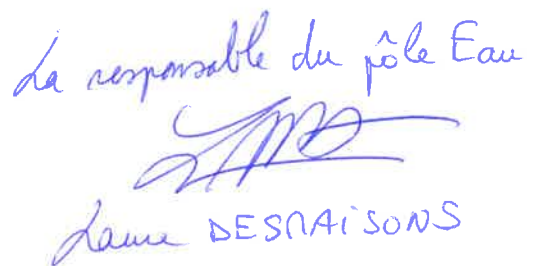 La responsable du pôle Eau
Laure DESMAISONS